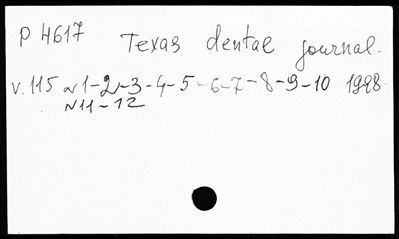 P 4617 Texas dental journal.
v. 115 N1-2-3-4-5-6-7-8-9-10 1998
N11-12